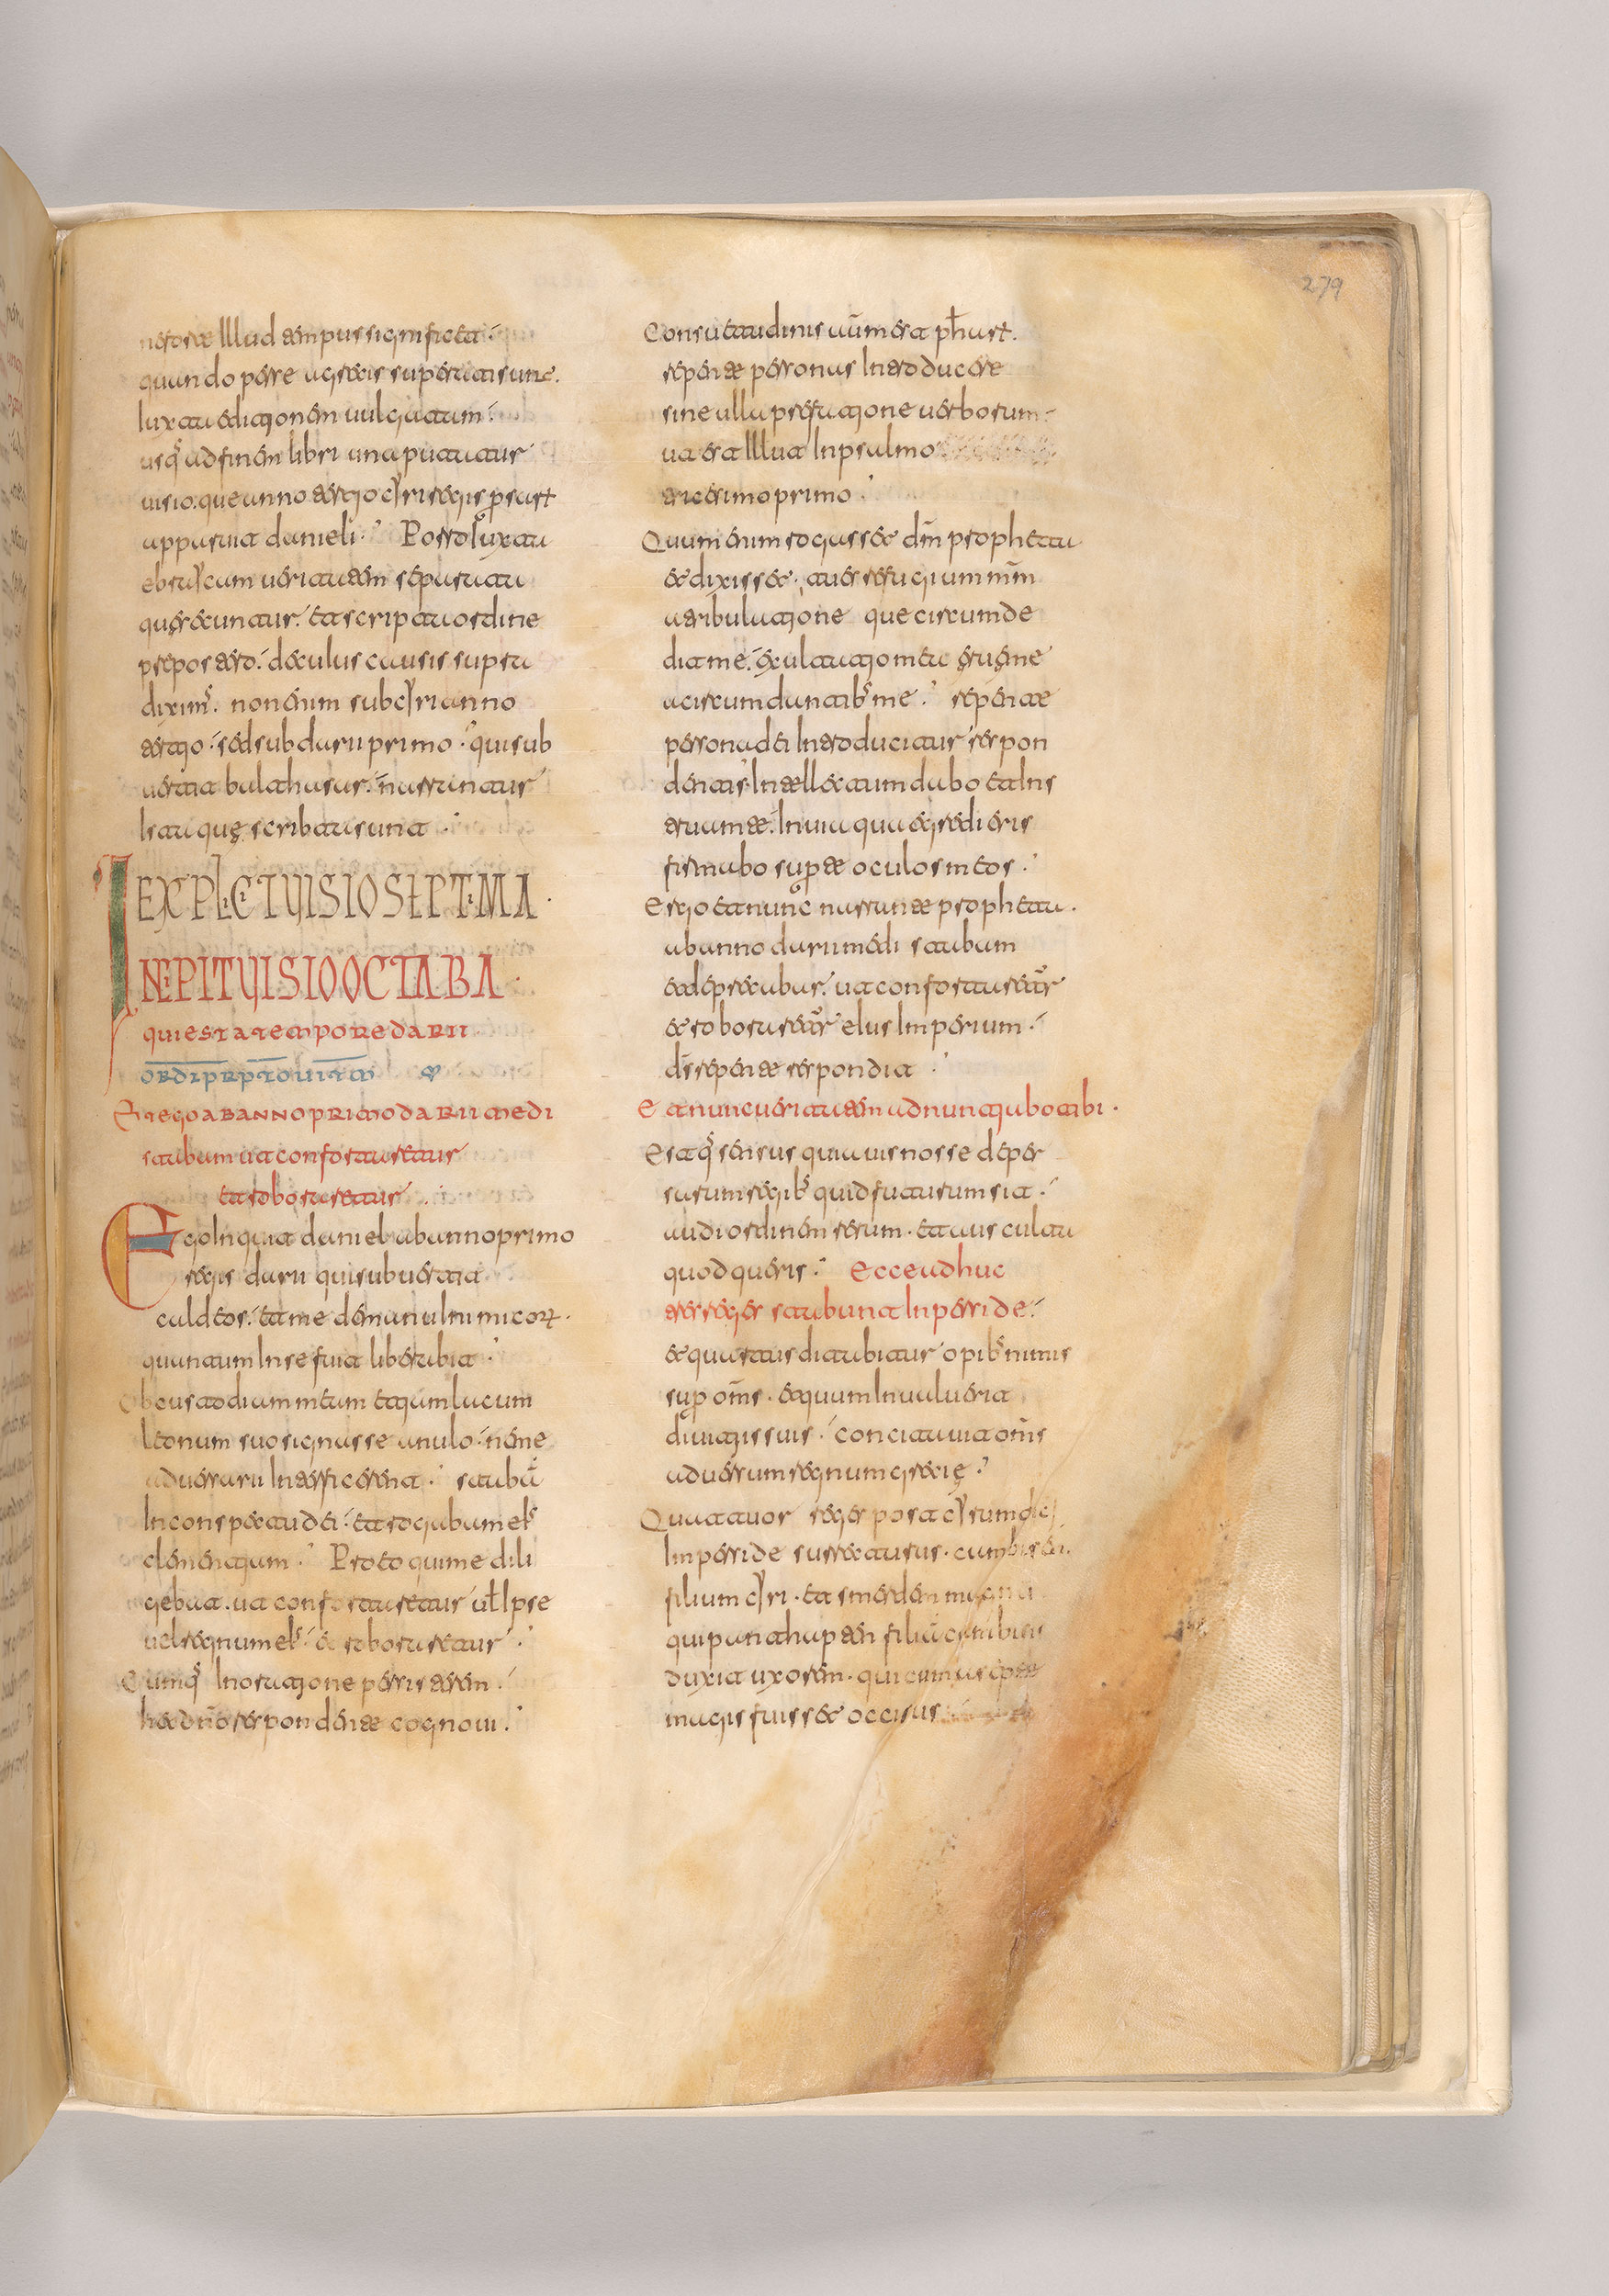 279
noster illud tempus significet:
quando perse a grecis superati sunt.
Iuxta editionem uulgatam:
usq; ad finem libri una putatur
uisio. que anno tertio cyri regis persarum
apparuit danieli. Porro Iuxta
ebraicam ueritatem separata
quę secuntur. et a scripta ordine
prepostero: et causis supra
diximus. non enim sub cyri anno
tertio: sed sub darii primo: qui sub
uertit balthasar. narrantur
Ista quę scribta sunt
EXPLCIT UISIO SEPTMA
INCPIT UISIO OCTABA
que est a tempore darii
Et ego ab anno primo darii medi
stabam ut confortaretur
et roboraretur
Ego Inquit daniel ab anno primo
regis darii qui subuertit
caldeos. et me de manu Inimicorum
quantum In se fuit liberabit
Obcustodiam meum etiam lacum
leonum suo signasse anulo. ne me
aduersarii Interficerent. stabā
In conspectu dei. et rogabam eius
clementiam. Pro eo qui me dili
gebat. ut confortaretur uel Ipse
uel regnum eius. et roboraretur
Cumq; In oratione persisterem.
hec dno respondente cognoui.
Consuetudinis autem est prophetarum
repente personas Introducere
sine ulla prefatione uerborum
ut est Illut In psalmo
tricesimo primo
Quum enim rogasset dm propheta
et dixisset. tu es refugium meum
a tribulatione que circumde
dit me. exultatio mea erue me
a circumdantibus me. repente
persona dei Introducitur respon
dentis. Intellectum dabo et Ins
truam te. In uia qua egredieris
firmabo super te oculos meos.
Ergo et nunc narrante propheta.
ab anno darii medi stabam
et deprecabar. ut confortaretur
et roboraretur eius Imperium.
ds repente respondit
Et nunc ueritatem adnuntiabo tibi.
Est q; sensus quia uis nosse de per
sarum regibus quid futurum sit.
audi ordinem rerum. et ausculta
quod queris. Ecce adhuc
tres reges stabunt In perside.
et quartus ditabitur opibus nimis
super oms. et quum Inualuerit
diuitiis suis. concitauit oms
aduersum regnum gręcię
Quattuor reges post cyrum dicit
In perside surrecturus. cambisen
filium cyri. et smerden magum
qui pantahapten filiam cambisis
duxit uxorem. qui cum a septem
magis fuisset occisus